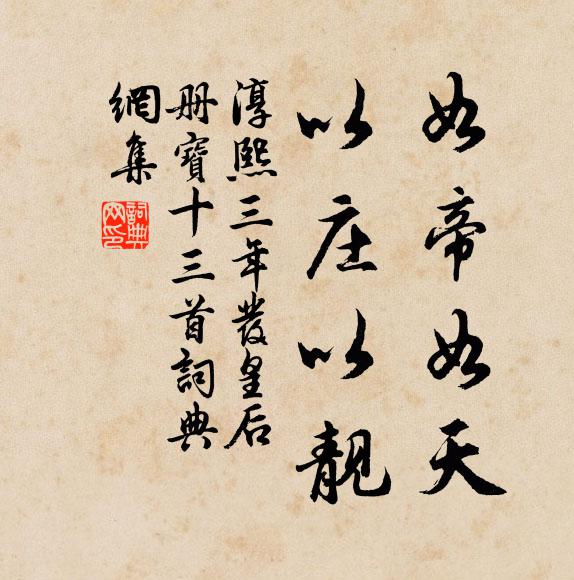 如帝如天
以庄以靓
淳熙三年發皇后
册寶十三首詞典
網集
詞典網印